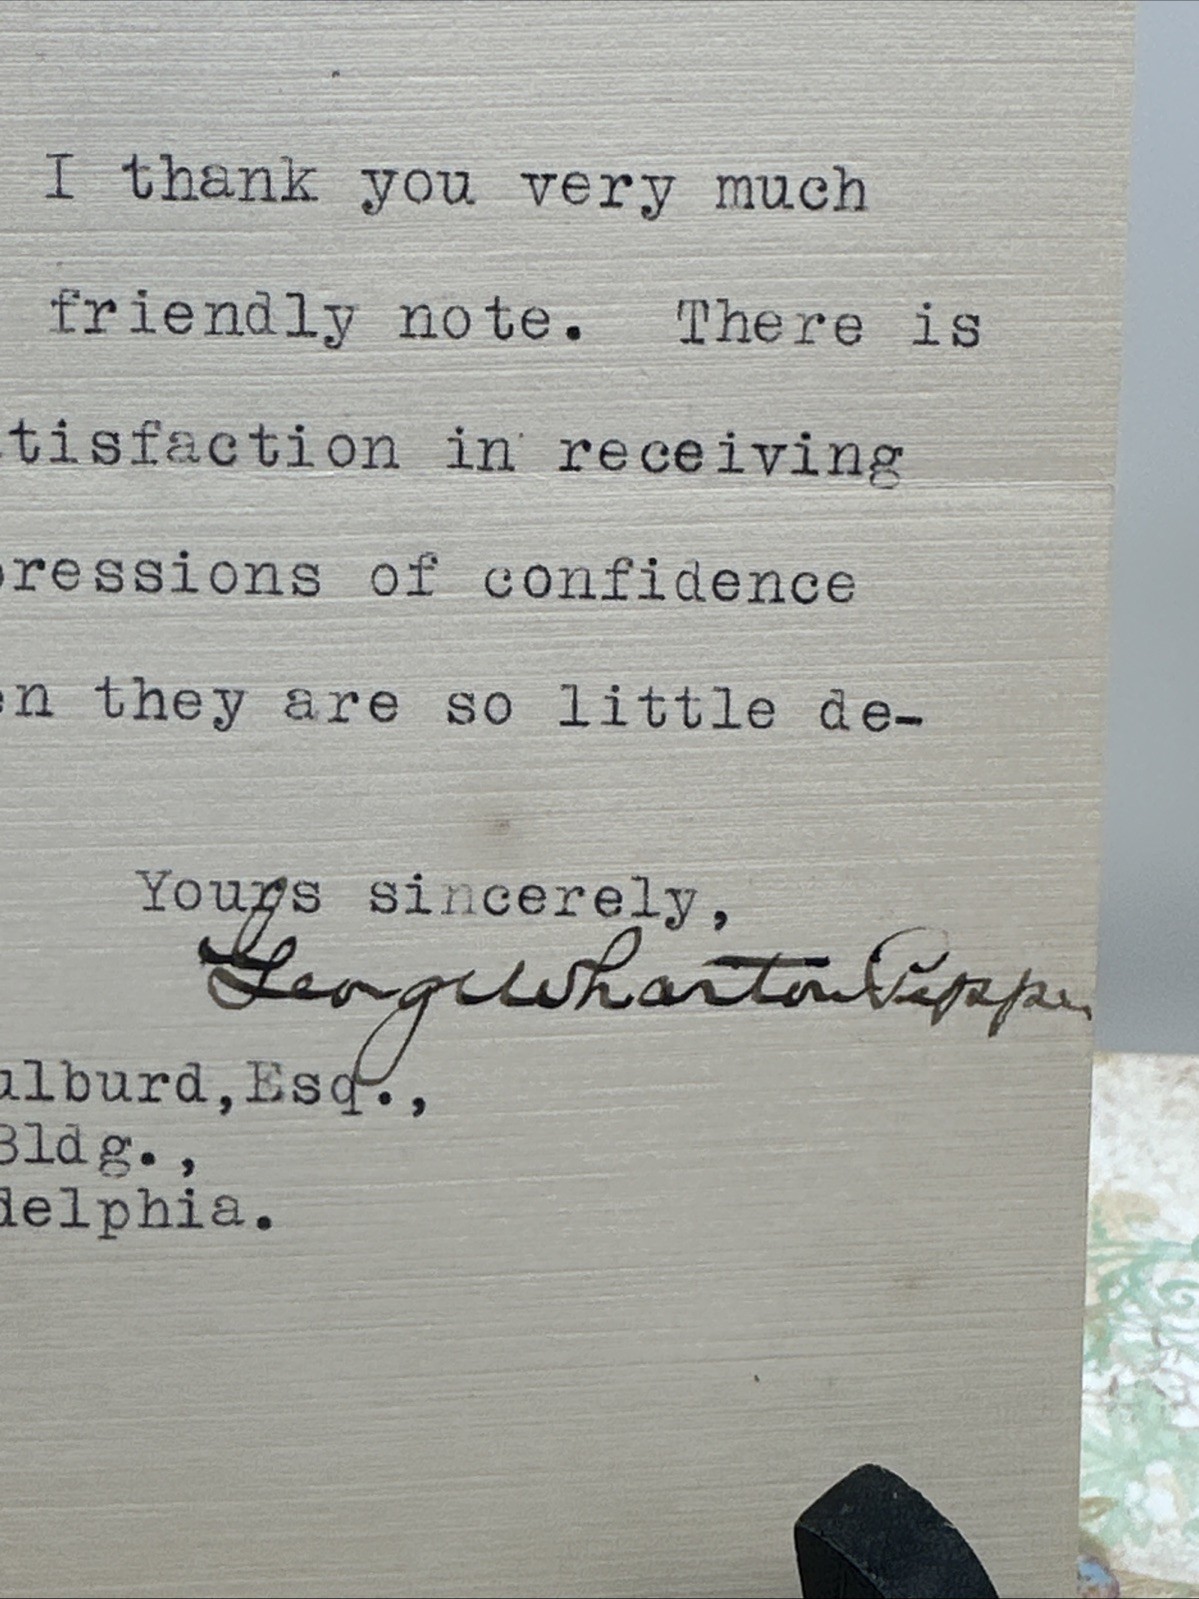 I thank you very much
friendly note. There is
tisfaction in receiving
pressions of confidence
en they are so little de-
Yours sincerely,
George Wharton Pepper
ulburd, Esq.,
Bldg.,
delphia.